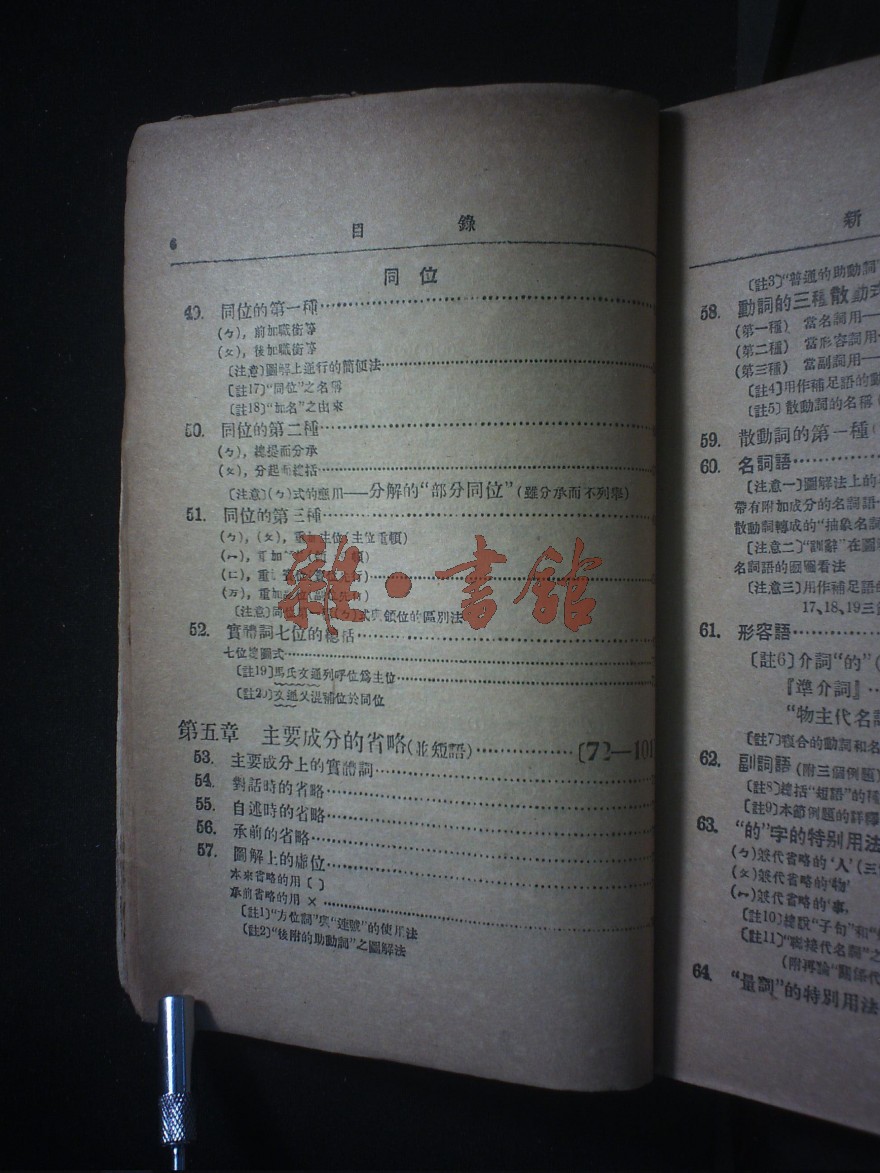 6 目錄
同位
49. 同位的第一種
(ㄅ), 前加職銜等
(ㄆ), 後加職銜等
〔注意〕圖解上述行的簡便法
〔註17〕“同位”之名稱
〔註18〕“加名”之由來
50. 同位的第二種
(ㄅ), 總提而分承
(ㄆ), 分起而總括
〔注意〕(ㄅ)式的應用——分解的“部分同位”(雖分承而不列舉)
51. 同位的第三種
(ㄅ), (ㄆ), 重加主位(主位重頓)
(ㄇ), 重加
(ㄈ), 重
(ㄪ), 重加
〔注意〕同位 式與領位的區別法
52. 實體詞七位的總括
七位總圖式
〔註19〕馬氏文通列呼位爲主位
〔註20〕文通又混補位於同位
第五章 主要成分的省略(並短語) 〔72—101
53. 主要成分上的實體詞
54. 對話時的省略
55. 自述時的省略
56. 承前的省略
57. 圖解上的虛位
本來省略的用〔 〕
承前省略的用 ×
〔註1〕“方位詞”與“連號”的使用法
〔註2〕“後附的助動詞”之圖解法
雜·書館
新
〔註3〕“普通的助動詞”
58. 動詞的三種散動式
(第一種) 當名詞用—
(第二種) 當形容詞用—
(第三種) 當副詞用—
〔註4〕用作補足語的動
〔註5〕散動詞的名稱
59. 散動詞的第一種(
60. 名詞語
〔注意一〕圖解法上的
帶有附加成分的名詞語
散動詞轉成的“抽象名詞
〔注意二〕“訓辭”在圖
名詞語的圇圇看法
〔注意三〕用作補足語的
17、18、19三
61. 形容語
〔註6〕介詞“的”(
『準介詞』
“物主代名詞
〔註7〕複合的動詞和名
62. 副詞語(附三個例題)
〔註8〕總括“短語”的種
〔註9〕本節例題的詳釋
63. “的”字的特別用法
(ㄅ)兼代省略的‘人’(三
(ㄆ)兼代省略的‘物’
(ㄇ)兼代省略的‘事’
〔註10〕總說“子句”和“
〔註11〕“聯接代名詞”之
(附再論“關係代
64. “量詞”的特別用法